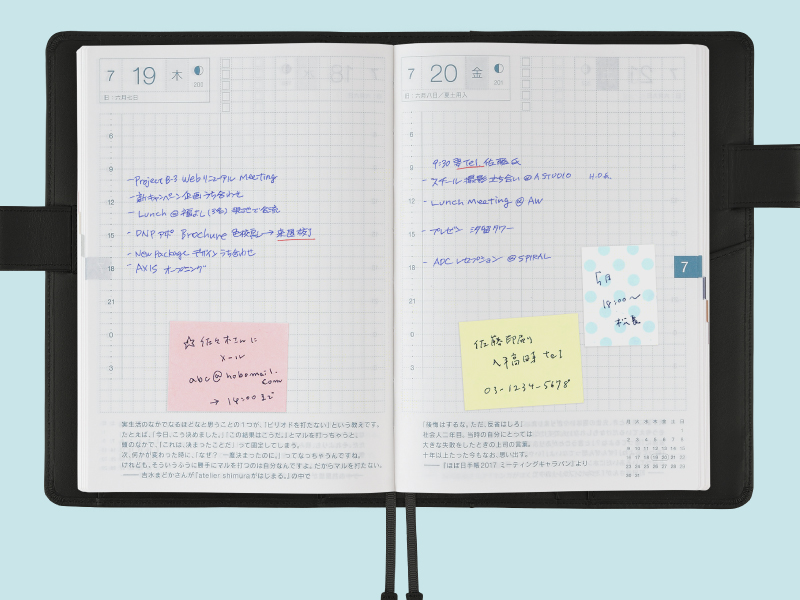 7 19 木
旧:六月七日
6
9
12
15
18
21
0
3
-Project B-3 Webリニューアル Meeting
-新キャンペーン企画うち合わせ
-Lunch @
-DNP Brochure →
-New Package デザインうち合わせ
-AXIS オープニング
☆佐々木さんに
メール
abc@hobomail.
com
→ 14:00まで
実生活のなかでなるほどなと思うことの1つが、「ピリオドを打たない」という教えです。
たとえば、「今日、こう決めました。」「この結果はこうだ。」とマルを打っちゃうと、
頭のなかで、「これは、決まったことだ」って固定してしまう。
次、何かが変わった時に、「なぜ?一度決まったのに。」ってなっちゃうんですね。
けれども、そういうふうに勝手にマルを打つのは自分なんですよ。だからマルを打たない。
——吉水まどかさんが『atelier:shimuraがはじまる。』の中で
7 20 金
旧:六月八日/夏土用入
6
9
12
15
18
21
0
3
9:30 Tel. 佐藤氏
-スチール撮影立ち合い @A STUDIO
-Lunch Meeting @ AW
-プレゼン 汐留タワー
-ADC レセプション @SPIRAL
7
18:00〜
佐藤印刷
03-1234-5678
「後悔はするな、ただ、反省はしろ」
社会人二年目、当時の自分にとっては
大きな失敗をしたときの上司の言葉。
十年以上たった今もなお、思い出す。
——『ほぼ日手帳2017 ミーティングキャラバン』より
月 火 水 木 金 土 日
1
2 3 4 5 6 7 8
9 10 11 12 13 14 15
16 17 18 19 20 21 22
23 24 25 26 27 28 29
30 31